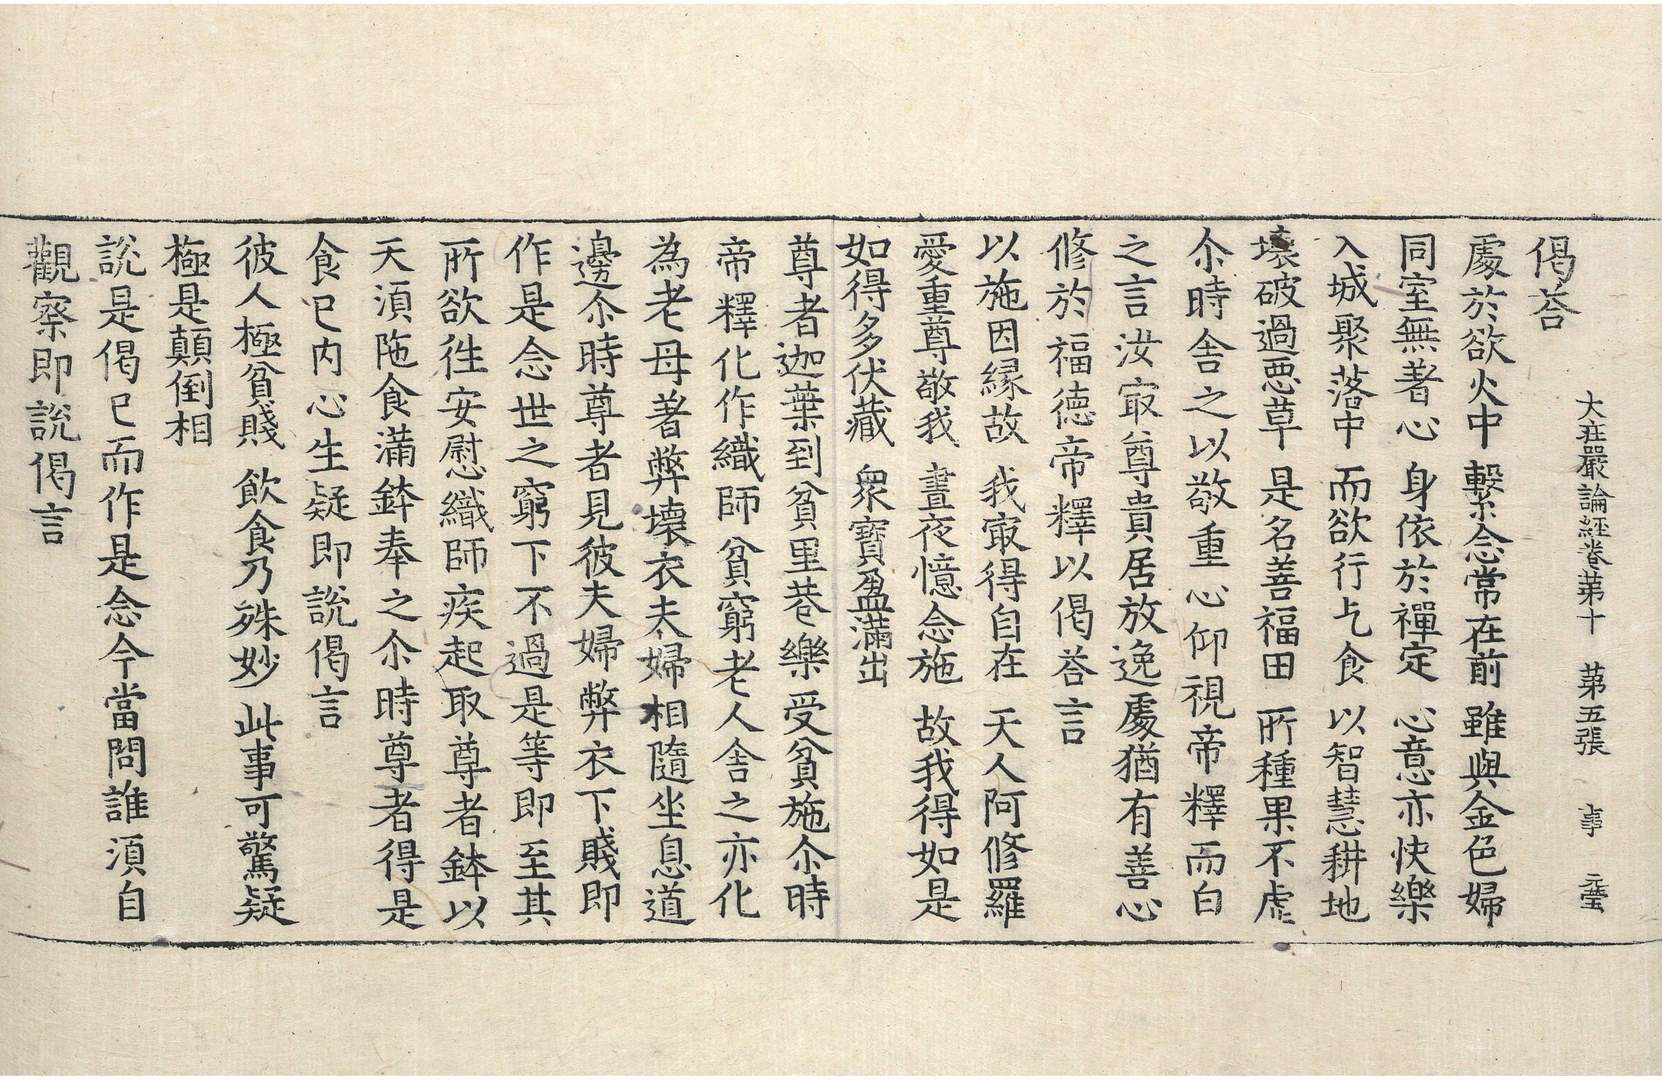 大莊嚴論經卷第十 第五張 事 元瑩
偈荅
處於欲火中 繫念常在前 雖與金色婦
同室無著心 身依於禪定 心意亦快樂
入城聚落中 而欲行乞食 以智慧耕地
壞破過惡草 是名善福田 所種果不虛
尒時舍之以敬重心仰視帝釋而白
之言汝㝡尊貴居放逸處猶有善心
修於福德帝釋以偈荅言
以施因緣故 我㝡得自在 天人阿修羅
愛重尊敬我 晝夜憶念施 故我得如是
如得多伏藏 衆寶盈滿出
尊者迦葉到貧里巷樂受貧施尒時
帝釋化作織師貧窮老人舍之亦化
為老母著弊壞衣夫婦相隨坐息道
邊尒時尊者見彼夫婦弊衣下賤即
作是念世之窮下不過是等即至其
所欲徃安慰織師疾起取尊者鉢以
天須陁食滿鉢奉之尒時尊者得是
食已內心生疑即說偈言
彼人極貧賤 飲食乃殊妙 此事可驚疑
極是顛倒相
說是偈已而作是念今當問誰須自
觀察即說偈言